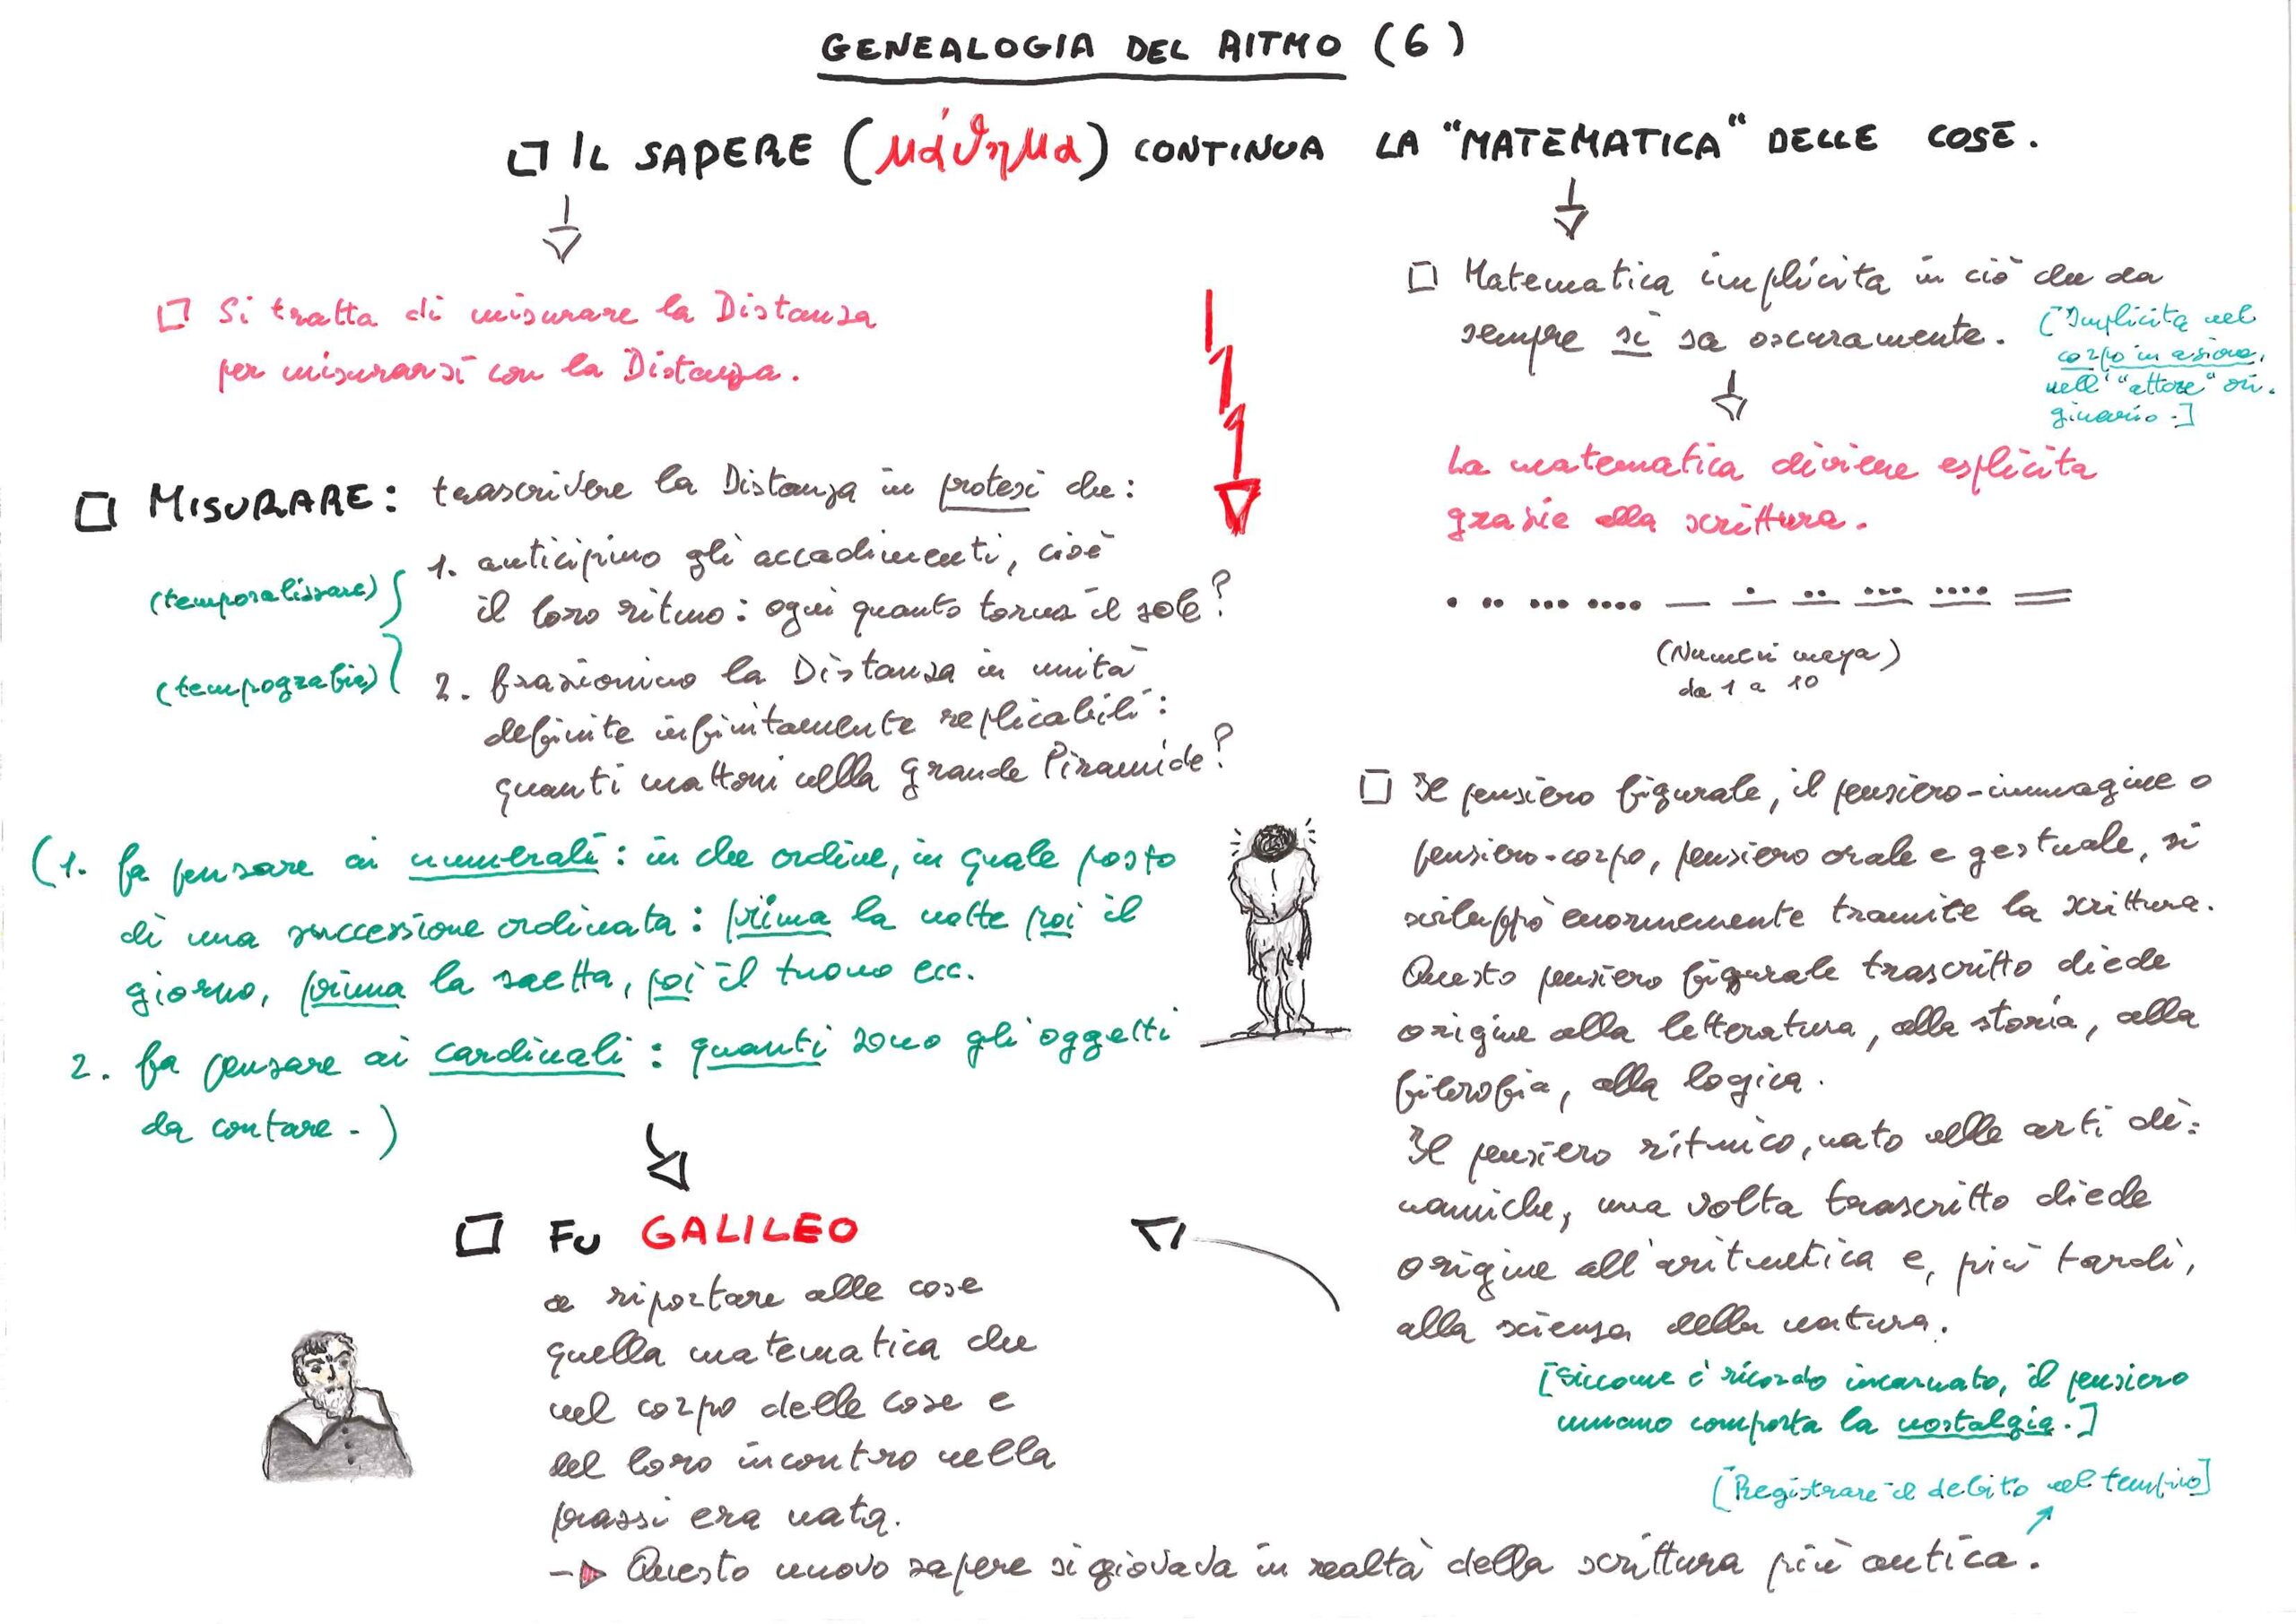 GENEALOGIA DEL RITMO (6)
IL SAPERE (μάϑημα) CONTINUA LA "MATEMATICA" DELLE COSE.
Si tratta di misurare la Distanza
per misurarsi con la Distanza.
MISURARE: trascrivere la Distanza in protesi che:
(temporalizzare)
1. anticipino gli accadimenti, cioè
il loro ritmo: ogni quanto torna il sole?
(tempografia)
2. frazionino la Distanza in unità
definite infinitamente replicabili:
quanti mattoni nella grande Piramide?
(1. fa pensare ai numerali: in che ordine, in quale posto
di una successione ordinata: prima la notte poi il
giorno, prima la saetta, poi il tuono ecc.
2. fa pensare ai cardinali: quanti sono gli oggetti
da contare.)
FU GALILEO
a riportare alle cose
quella matematica che
nel corpo delle cose e
del loro incontro nella
prassi era nata.
Questo nuovo sapere si giovava in realtà della scrittura più antica.
Matematica implicita in ciò che da
sempre si sa oscuramente.
[Implicita nel
corpo in azione,
nell'"attore" ori-
ginario.]
La matematica diviene esplicita
grazie alla scrittura.
(Numeri maya)
da 1 a 10
Il pensiero figurale, il pensiero-immagine o
pensiero-corpo, pensiero orale e gestuale, si
sviluppò enormemente tramite la scrittura.
Questo pensiero figurale trascritto diede
origine alla letteratura, alla storia, alla
filosofia, alla logica.
Il pensiero ritmico, nato nelle arti di=
namiche, una volta trascritto diede
origine all'aritmetica e, più tardi,
alla scienza della natura.
[Siccome è ricordo incarnato, il pensiero
umano comporta la nostalgia.]
[Registrare il debito nel tempio]